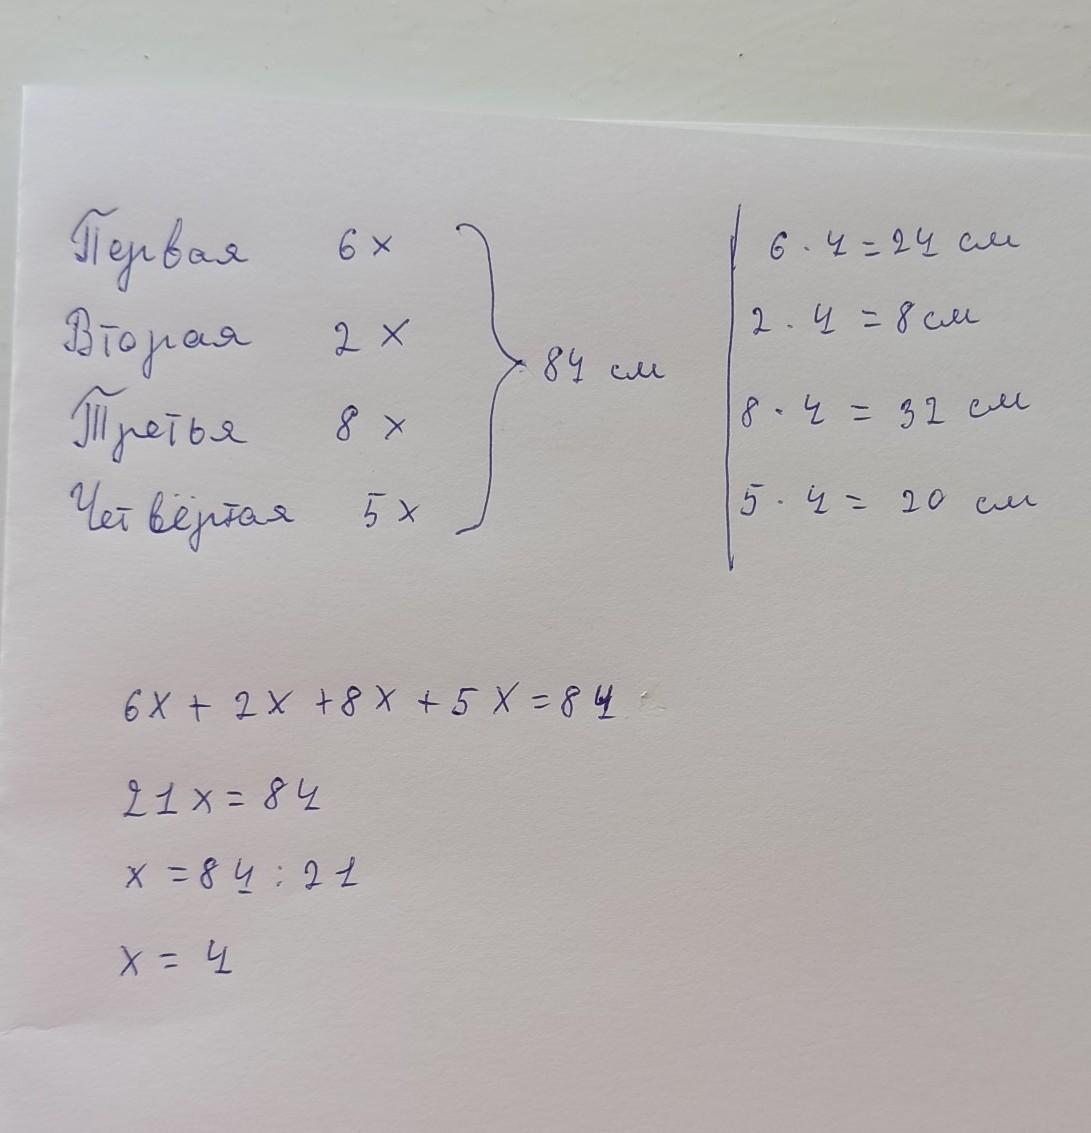 Первая 6x
Вторая 2x
Третья 8x
Четвёртая 5x
84 см
6 · 4 = 24 см
2 · 4 = 8 см
8 · 4 = 32 см
5 · 4 = 20 см
6x + 2x + 8x + 5x = 84
21x = 84
x = 84 : 21
x = 4